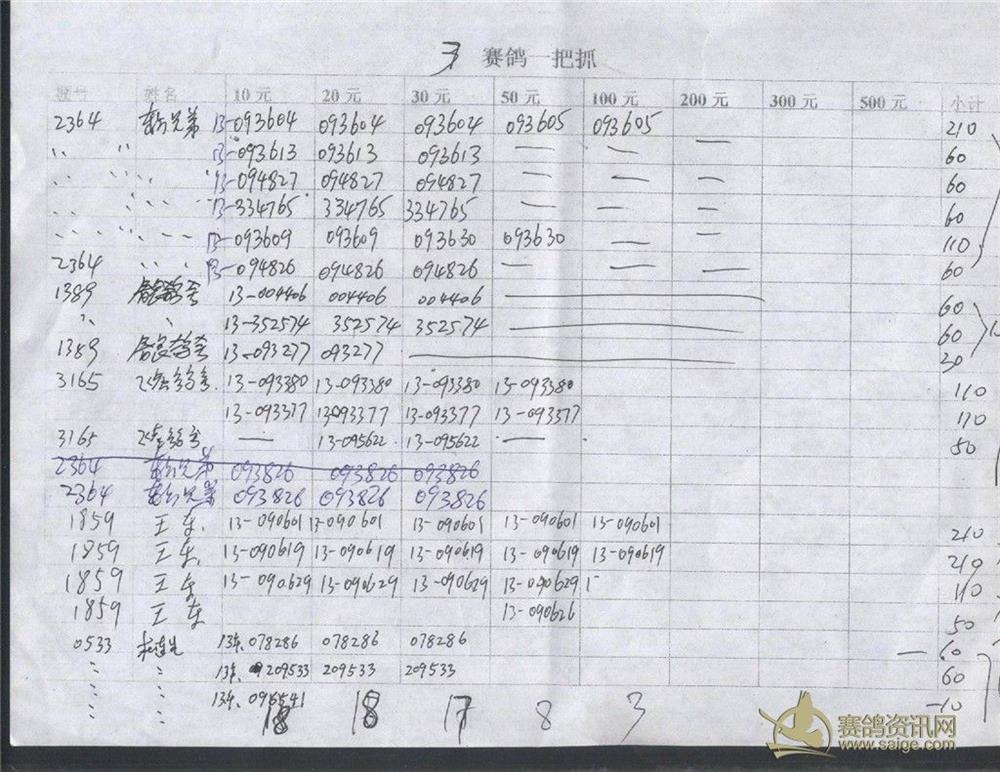 3 赛鸽一把抓
姓名 10元 20元 30元 50元 100元 200元 300元 500元 小计
2364 兄弟 13-093604 093604 093604 093605 093605 210
〃 〃 13-093613 093613 093613 — — — 60
〃 〃 13-094827 094827 094827 — — — 60
〃 〃 13-334765 334765 334765 — — — 60
〃 〃 13-093609 093609 093630 093630 — — 110
2364 〃 13-094826 094826 094826 — — — 60
1389 13-004406 004406 004406 — 60
〃 〃 13-352574 352574 352574 — 60
1389 13-093277 093277 — 30
3165 13-093380 13-093380 13-093380 13-093380 110
13-093377 13-093377 13-093377 13-093377 110
3165 — 13-095622 13-095622 — 50
2364 兄弟 093826 093826 093826
2364 兄弟 093826 093826 093826
1859 王车 13-090601 13-090601 13-090601 13-090601 13-090601 210
1859 王车 13-090619 13-090619 13-090619 13-090619 13-090619 210
1859 王车 13-090629 13-090629 13-090629 13-090629 110
1859 王车 13-090626 50
0533 13年.078286 078286 078286 — 60
〃 〃 13年.209533 209533 209533 60
〃 〃 13年.096541 -10
〃 〃 18 18 17 8 3
赛鸽资讯网
www.saige.com